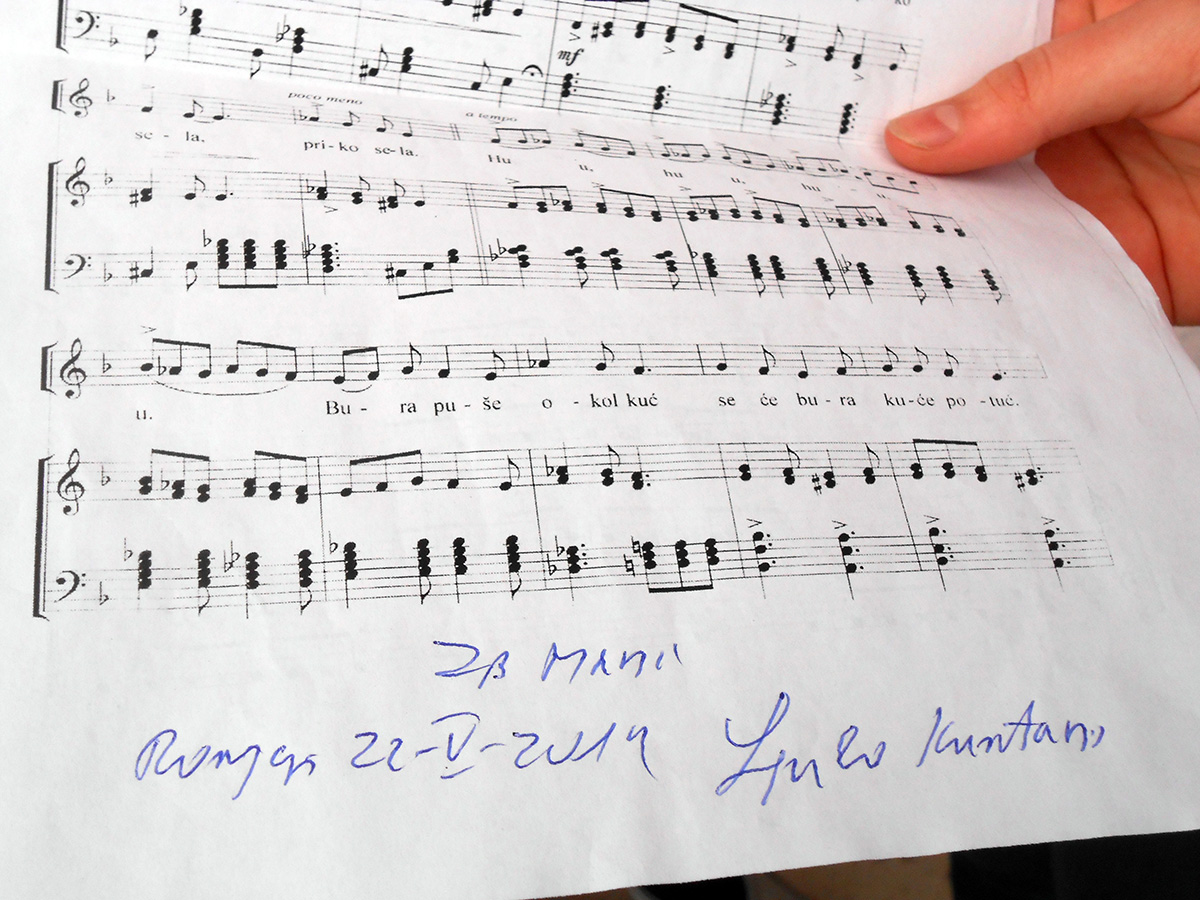 ko
mf
poco meno
a tempo
se - la. pri - ko se-la. Hu u, hu u, hu
u. Bu - ra pu - še o - kol kuć se će bu - ra ku - će po - tuć.
22-V-2014